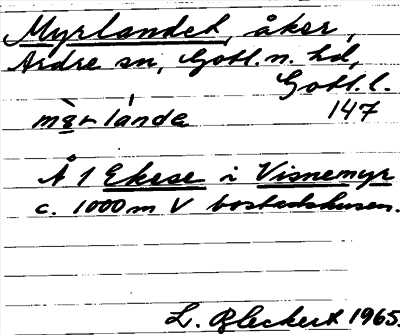 Myrlandet, åker,
Ardre sn, Gotl. n. hd,
Gotl. l.
147
mə̀r lánde
Å 1 Ekese i Visnemyr
c. 1000 m V bostadshusen.
L. Bleckert 1965.